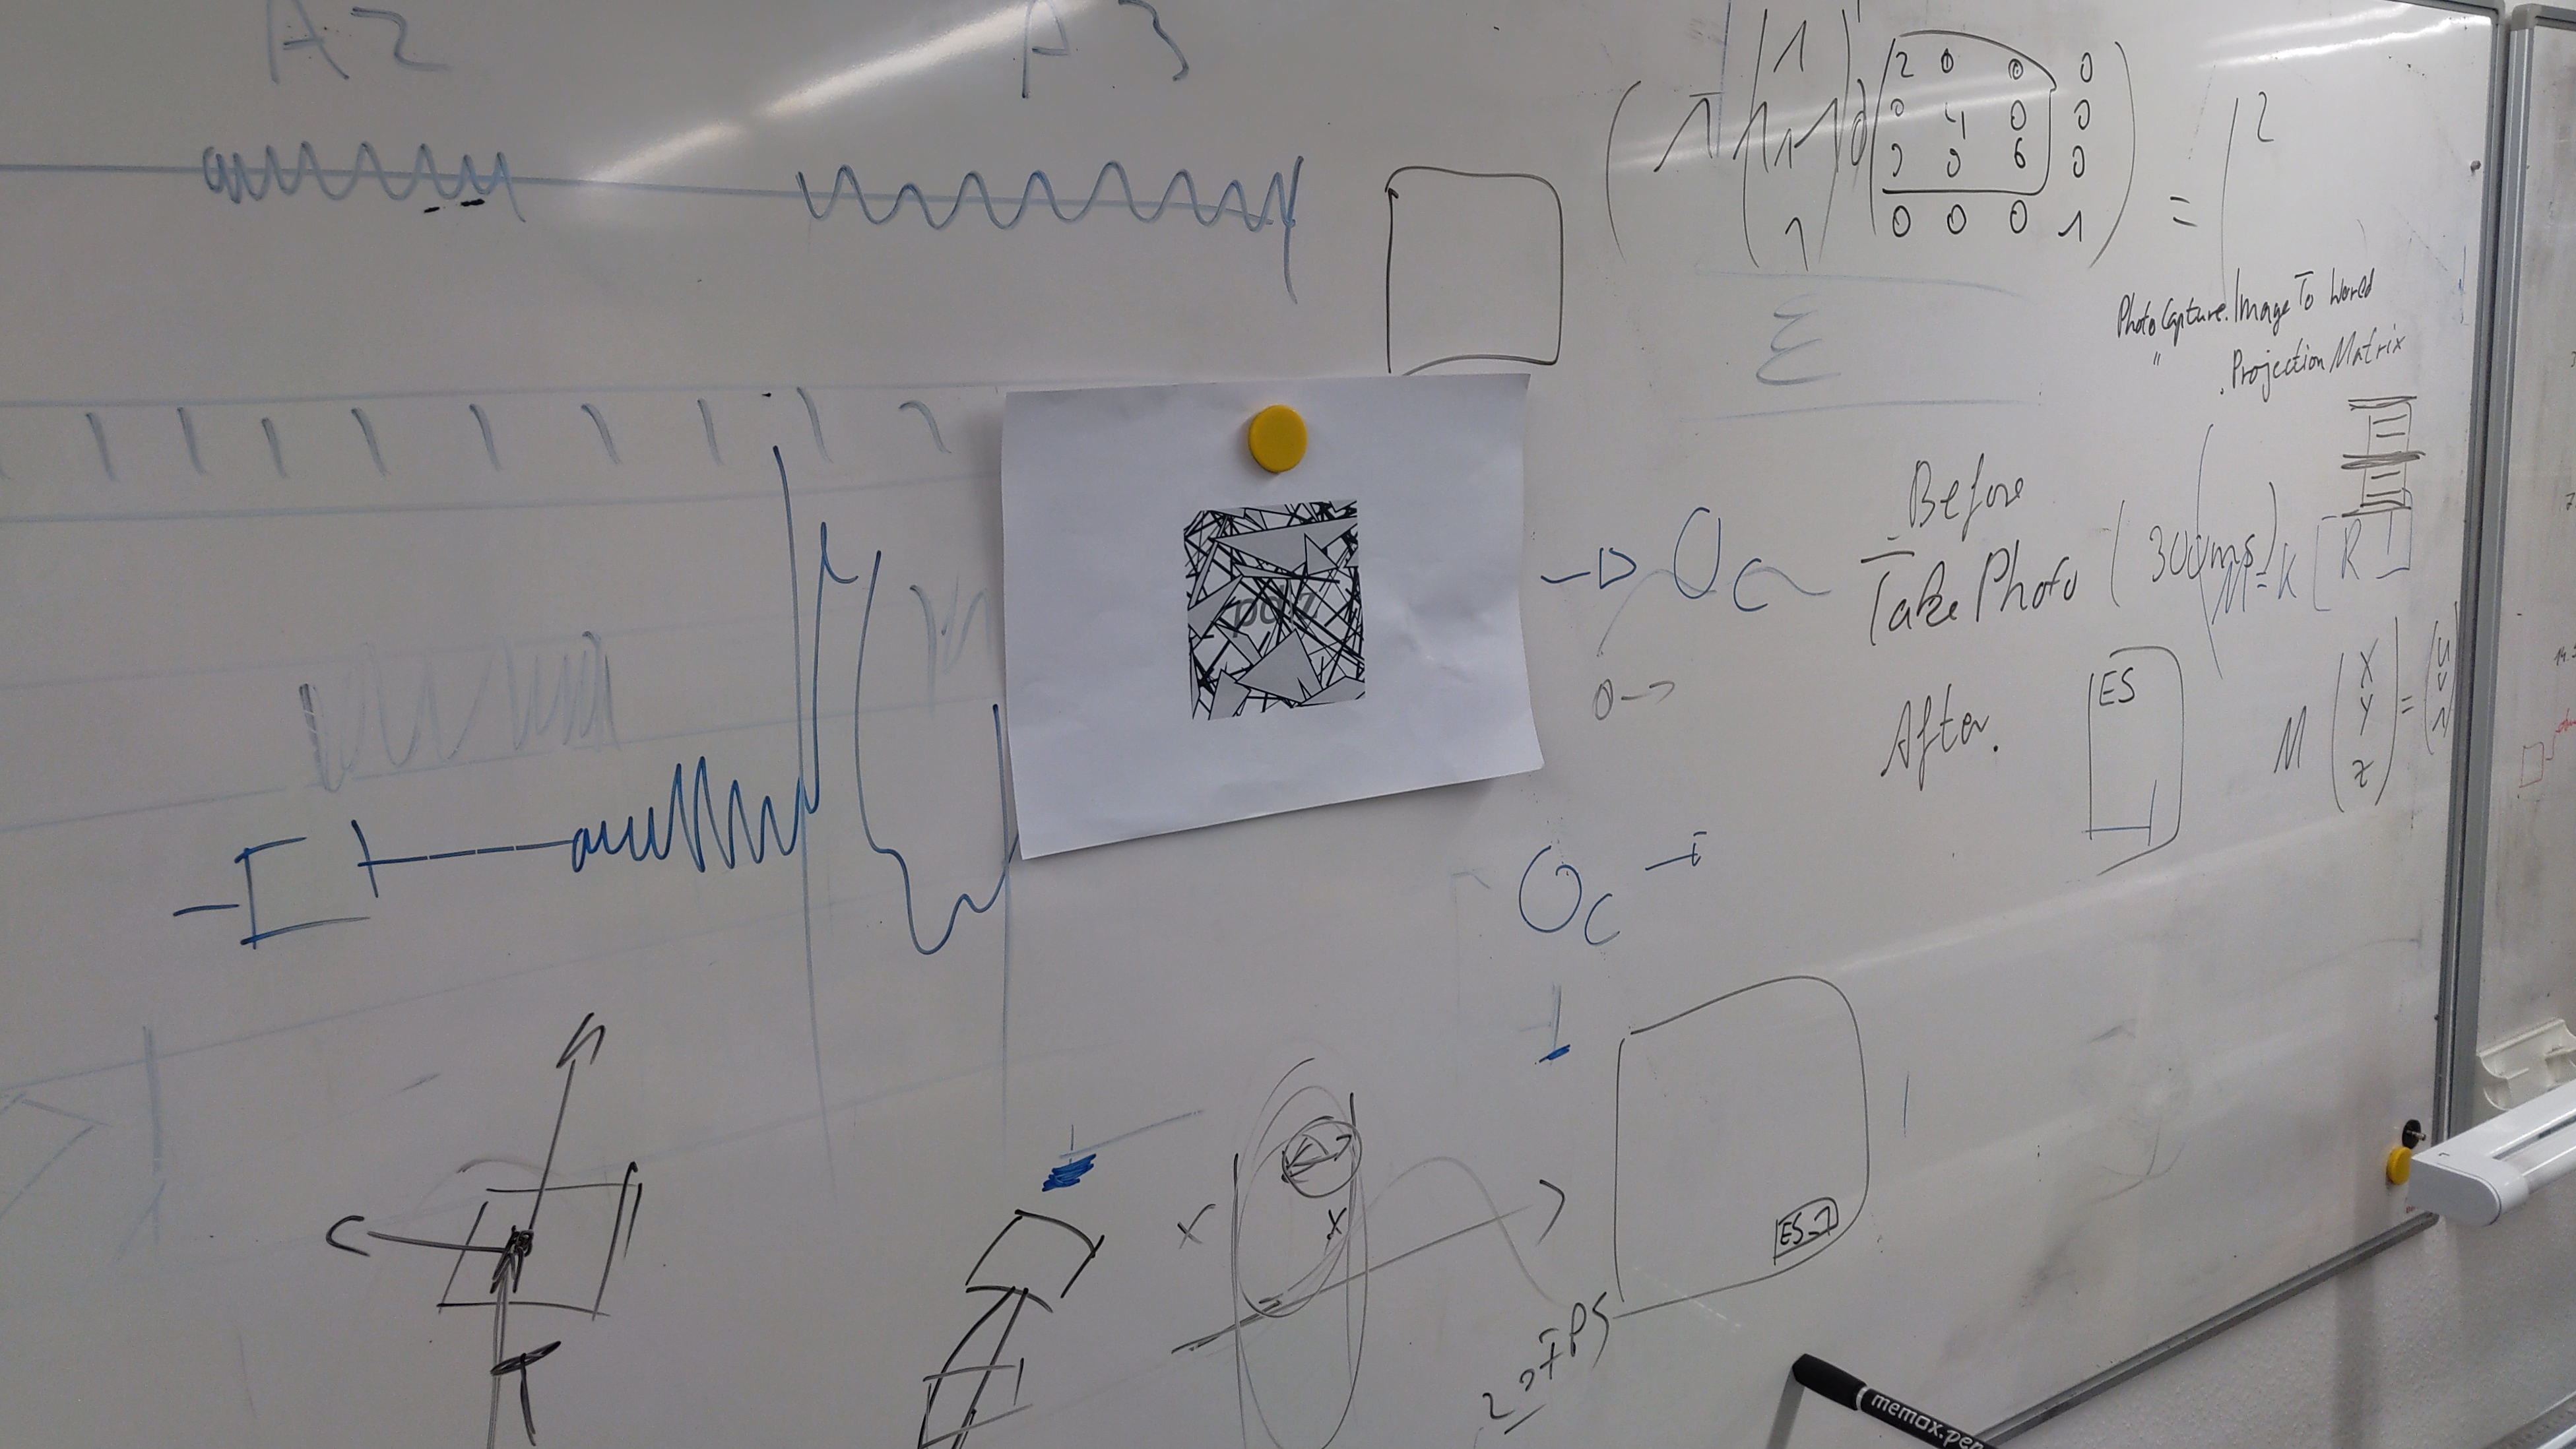 A2
A3
2 0 0 0
0 4 0 0
0 0 6 0
0 0 0 1
= 2
Σ
PhotoCapture.ImageToWorld
" .ProjectionMatrix
Before
TakePhoto (300ms)
M=K [R
After.
ES
M (X Y Z) = (u v 1)
Oc
0->
Oc
ES_1
20FPS
memax.pen